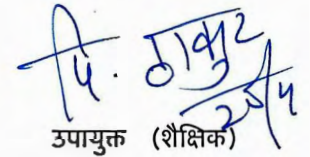 पि. ठाकुर
25/4
उपायुक्त (शैक्षिक)